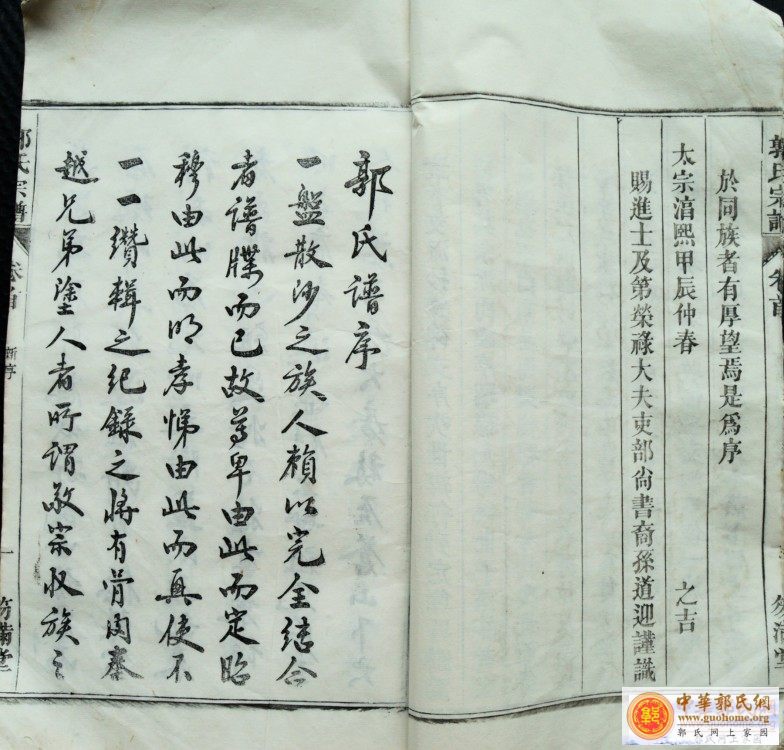 郭氏宗譜 卷首
於同族者有厚望焉是爲序
太宗湻熙甲辰仲春 之吉
賜進士及第榮祿大夫吏部尙書裔孫道迎謹識
郭氏譜序
一盤散沙之族人賴以完全結合
者譜牒而已故尊卑由此而定昭
穆由此而明孝悌由此而興使不
一一纘輯之紀錄之將有骨肉秦
越兄弟塗人者所謂敬宗收族之
郭氏宗譜 卷首 新序 一 笏滿堂
中華郭氏網
www.guohome.org
郭氏網上家園